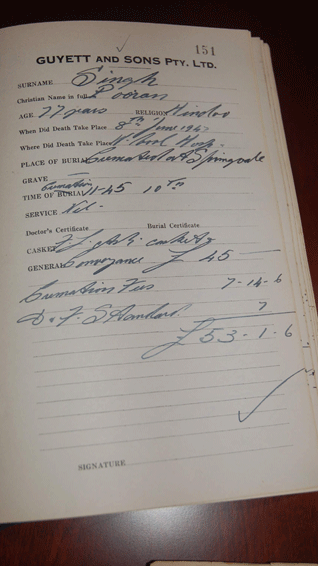 151
GUYETT AND SONS PTY. LTD.
SURNAME Singh
Christian Name in full Pooran
AGE 77 years RELIGION Hindoo
When Did Death Take Place 8th June 1947
Where Did Death Take Place W'bool Hosp.
PLACE OF BURIAL Cremated at Springvale
GRAVE
Cremation
TIME OF BURIAL 11-45 10th
SERVICE Nil-
Doctor's Certificate Burial Certificate
CASKET casket &
GENERAL Conveyance £ 45
Cremation Fees 7-14-6
D. & F. Standard 7
£ 53-1-6
SIGNATURE